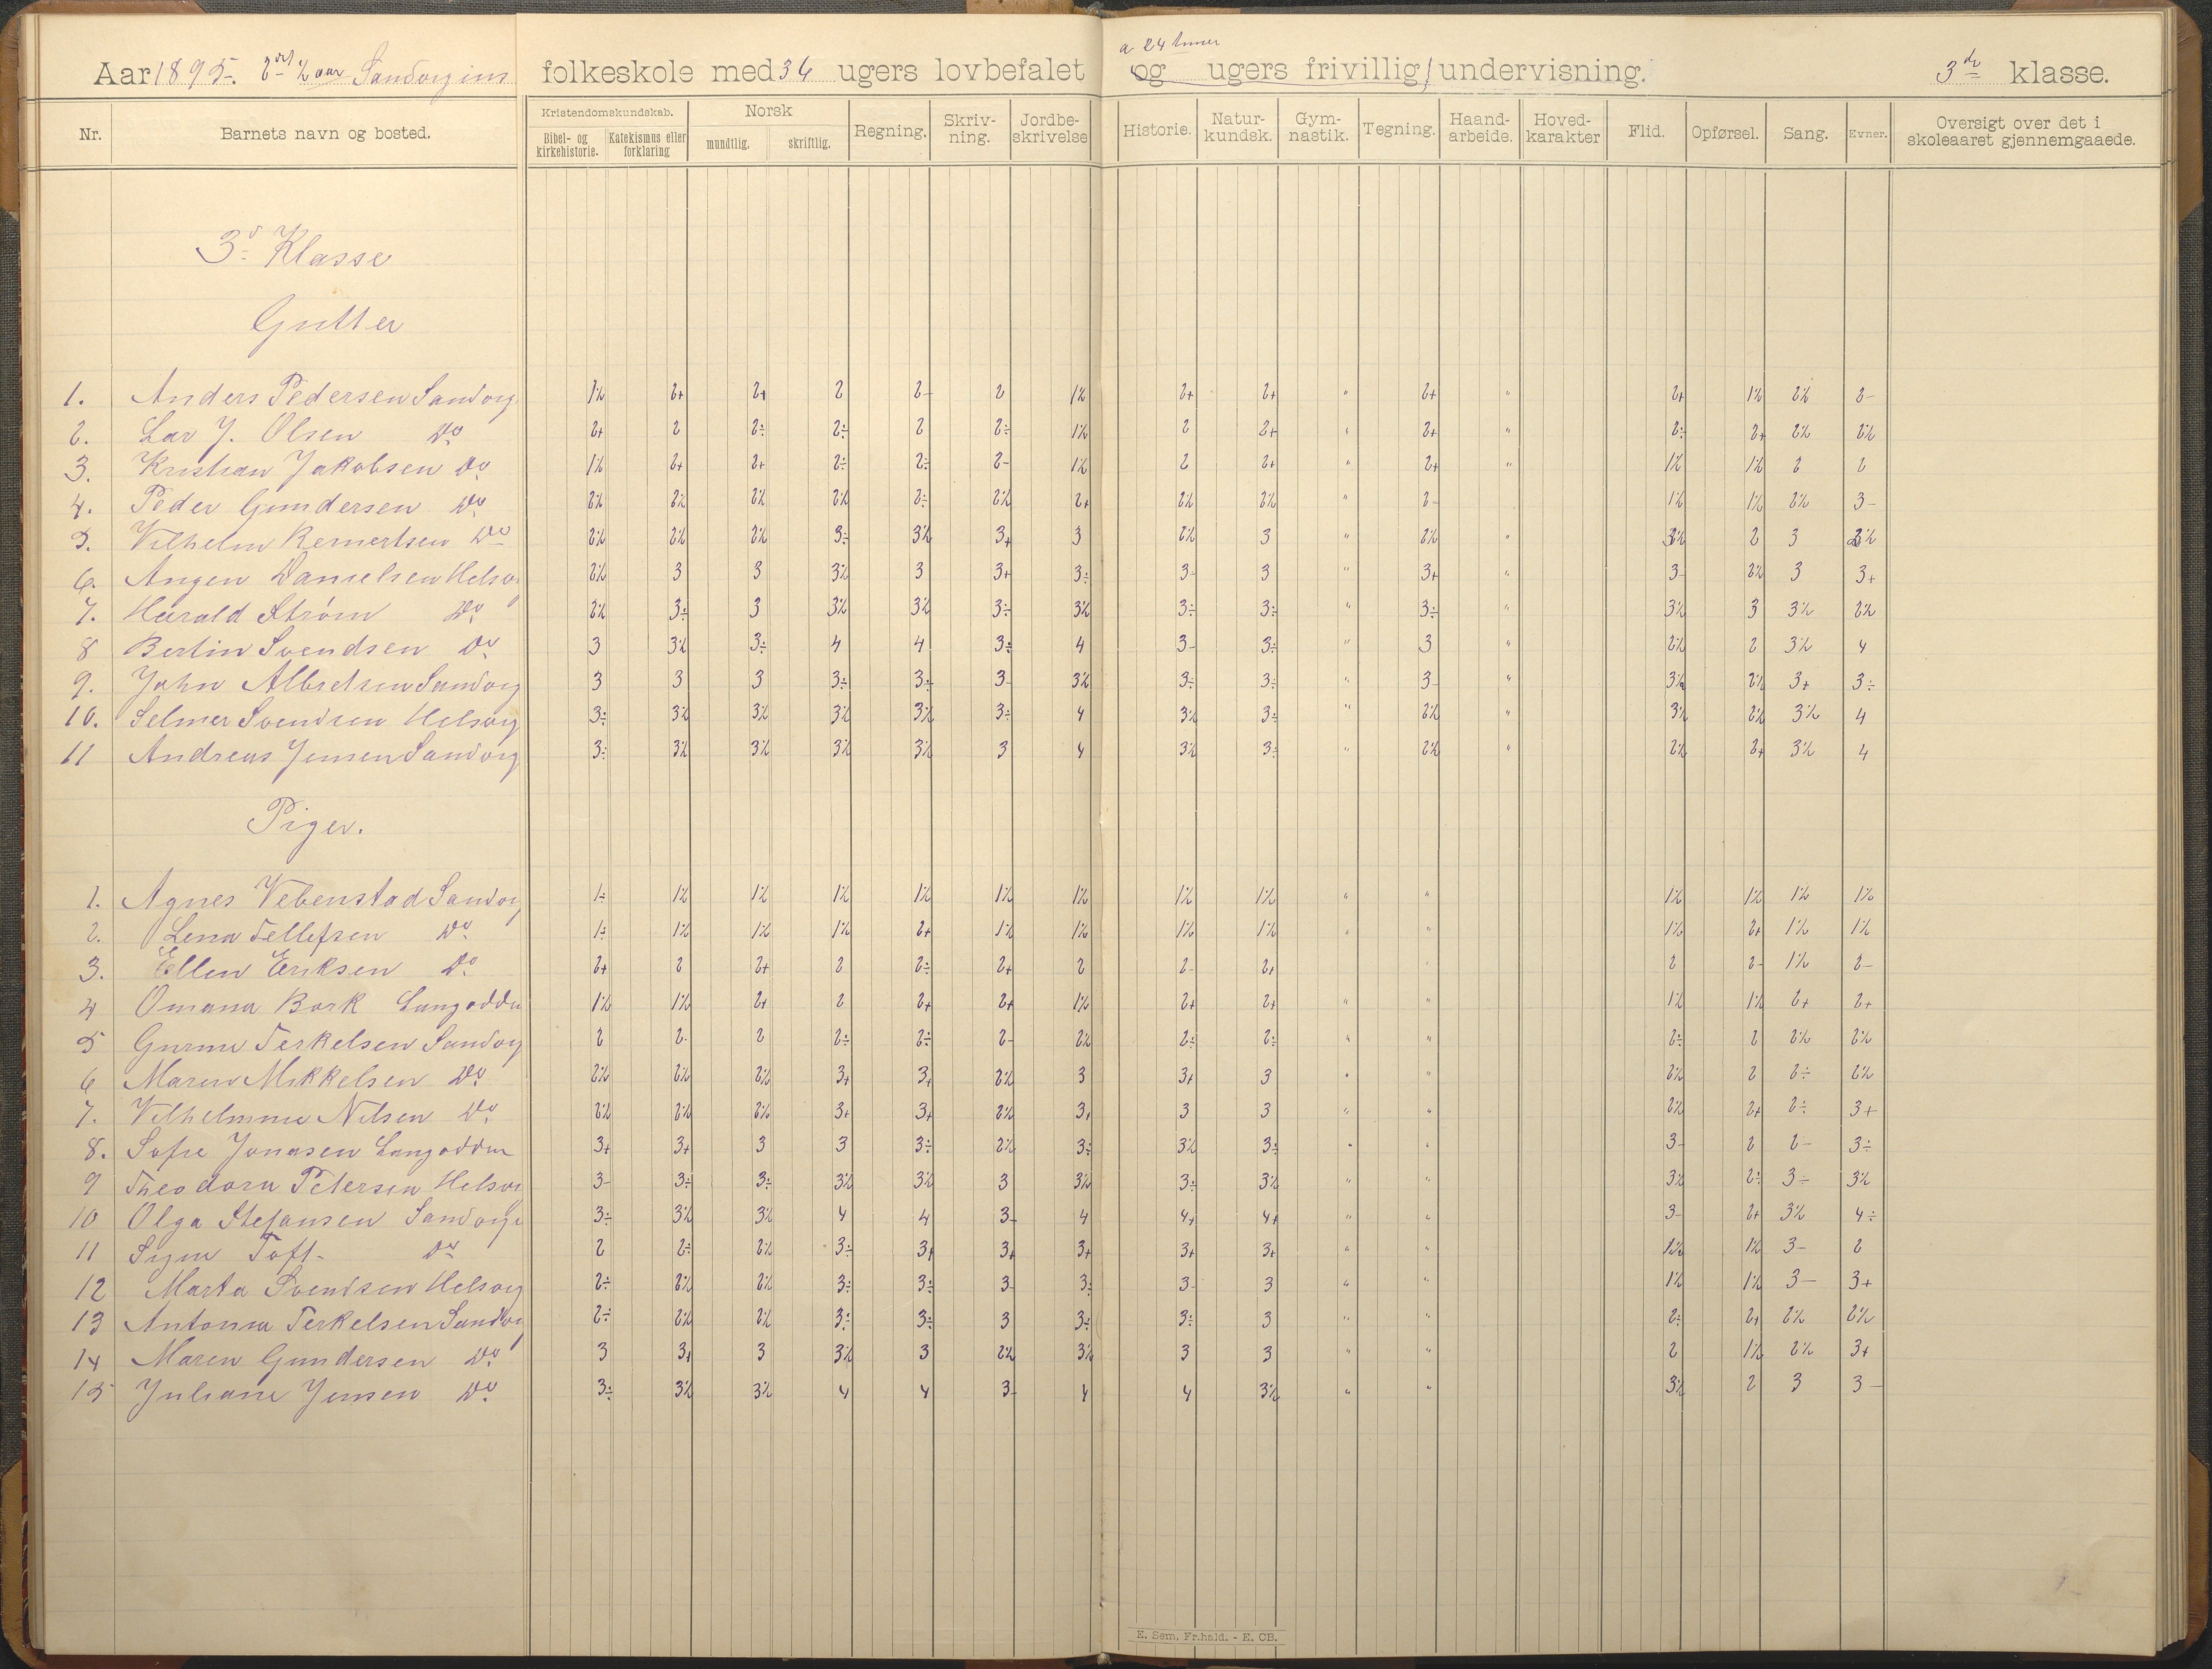 a 24 timer
Aar 1895. 2det ½ aar Sandvigens folkeskole med 36 ugers lovbefalet og ugers frivillig undervisning. 3de klasse.
Nr. Barnets navn og bosted. Kristendomskundskab. Bibel- og kirkehistorie. Katekismus eller forklaring Norsk mundtlig. skriftlig. Regning. Skriv-ning. Jordbe-skrivelse Historie. Natur-kundsk. Gym-nastik. Tegning. Haand-arbeide. Hoved-karakter Flid. Opførsel. Sang. Evner. Oversigt over det i skoleaaret gjennemgaaede.
3d Klasse
Gutter
1. Anders Pedersen Sandvig 1½ 2+ 2+ 2 2- 2 1½ 2+ 2+ " 2+ " 2+ 1½ 2½ 2-
2. Lar J. Olsen Do 2+ 2 2÷ 2÷ 2 2÷ 1½ 2 2+ " 2+ " 2÷ 2+ 2½ 2½
3. Kristian Jakobsen Do 1½ 2+ 2+ 2÷ 2÷ 2- 1½ 2 2+ " 2+ " 1½ 1½ 2 2
4. Peder Gundersen Do 2½ 2½ 2½ 2½ 2÷ 2½ 2+ 2½ 2½ " 2- 1½ 1½ 2½ 3-
5. Vilhelm Reinertsen Do 2½ 2½ 2½ 3÷ 3½ 3+ 3 2½ 3 " 2½ " 2½ 2 3 2½
6. Angen Danielsen Helsvig 2½ 3 3 3½ 3 3+ 3÷ 3- 3 " 3+ " 3- 2½ 3 3+
7. Harald Strøm Do 2½ 3÷ 3 3½ 3½ 3÷ 3½ 3÷ 3÷ " 3÷ " 3½ 3 3½ 2½
8 Bertin Svendsen Do 3 3½ 3÷ 4 4 3÷ 4 3- 3÷ " 3 " 2½ 2 3½ 4
9. John Albretsen Sandvig 3 3 3 3÷ 3÷ 3- 3½ 3÷ 3÷ " 3- " 3½ 2½ 3+ 3÷
10. Selmer Svendsen Helsvig 3÷ 3½ 3½ 3½ 3½ 3÷ 4 3½ 3÷ " 2½ " 3½ 2½ 3½ 4
11 Andreas Jensen Sandvig 3÷ 3½ 3½ 3½ 3½ 3 4 3½ 3÷ " 2½ " 2½ 2+ 3½ 4
Piger.
1. Agnes Vebenstad Sandvig 1÷ 1½ 1½ 1½ 1½ 1½ 1½ 1½ 1½ " " 1½ 1½ 1½ 1½
2. Lena Tellefsen Do 1÷ 1½ 1½ 1½ 2+ 1½ 1½ 1½ 1½ " " 1½ 2+ 1½ 1½
3. Ellen Eriksen Do 2+ 2 2+ 2 2÷ 2+ 2 2- 2+ " 2 2- 1½ 2-
4 Omana Bork Langodden 1½ 1½ 2+ 2 2+ 2+ 1½ 2+ 2+ " " 1½ 1½ 2+ 2+
5 Gurine Terkelsen Sandvig 2 2- 2 2÷ 2÷ 2- 2½ 2÷ 2÷ " " 2÷ 2 2½ 2½
6 Maren Mikkelsen Do 2½ 2½ 2½ 3+ 3+ 2½ 3 3+ 3 " " 2½ 2 2÷ 2½
7. Vilhelmine Nilsen Do 2½ 2½ 2½ 3+ 3+ 2½ 3+ 3 3 " " 2½ 2+ 2÷ 3+
8. Sofie Jonasen Langodden 3+ 3+ 3 3 3÷ 2½ 3÷ 3½ 3÷ " " 3- 2 2- 3÷
9 Theodora Petersen Helsvig 3- 3÷ 3÷ 3½ 3½ 3 3½ 3÷ 3½ " " 3½ 2÷ 3÷ 3½
10 Olga Stefansen Sandvigen 3÷ 3½ 3½ 4 4 3- 4 4+ 4+ " " 3- 2+ 3½ 4÷
11 Signe Toft- Do 2 2÷ 2½ 3÷ 3+ 3+ 3+ 3+ 3+ " " 1½ 1½ 3- 2
12 Marta Svendsen Helsvig 2÷ 2½ 2½ 3÷ 3÷ 3- 3÷ 3- 3 " " 1½ 1½ 3- 3+
13 Antonia Terkelsen Sandvig 2÷ 2½ 2½ 3÷ 3÷ 3 3÷ 3÷ 3 " " 2÷ 2+ 2½ 2½
14 Maren Gundersen Do 3 3+ 3 3½ 3 2½ 3½ 3 3 " " 2 1½ 2½ 3+
15 Juliane Jensen Do 3÷ 3½ 3½ 4 4 3- 4 4 3½ " " 3½ 2 3 3-
E. Sem, Fr.hald. - E. CB.